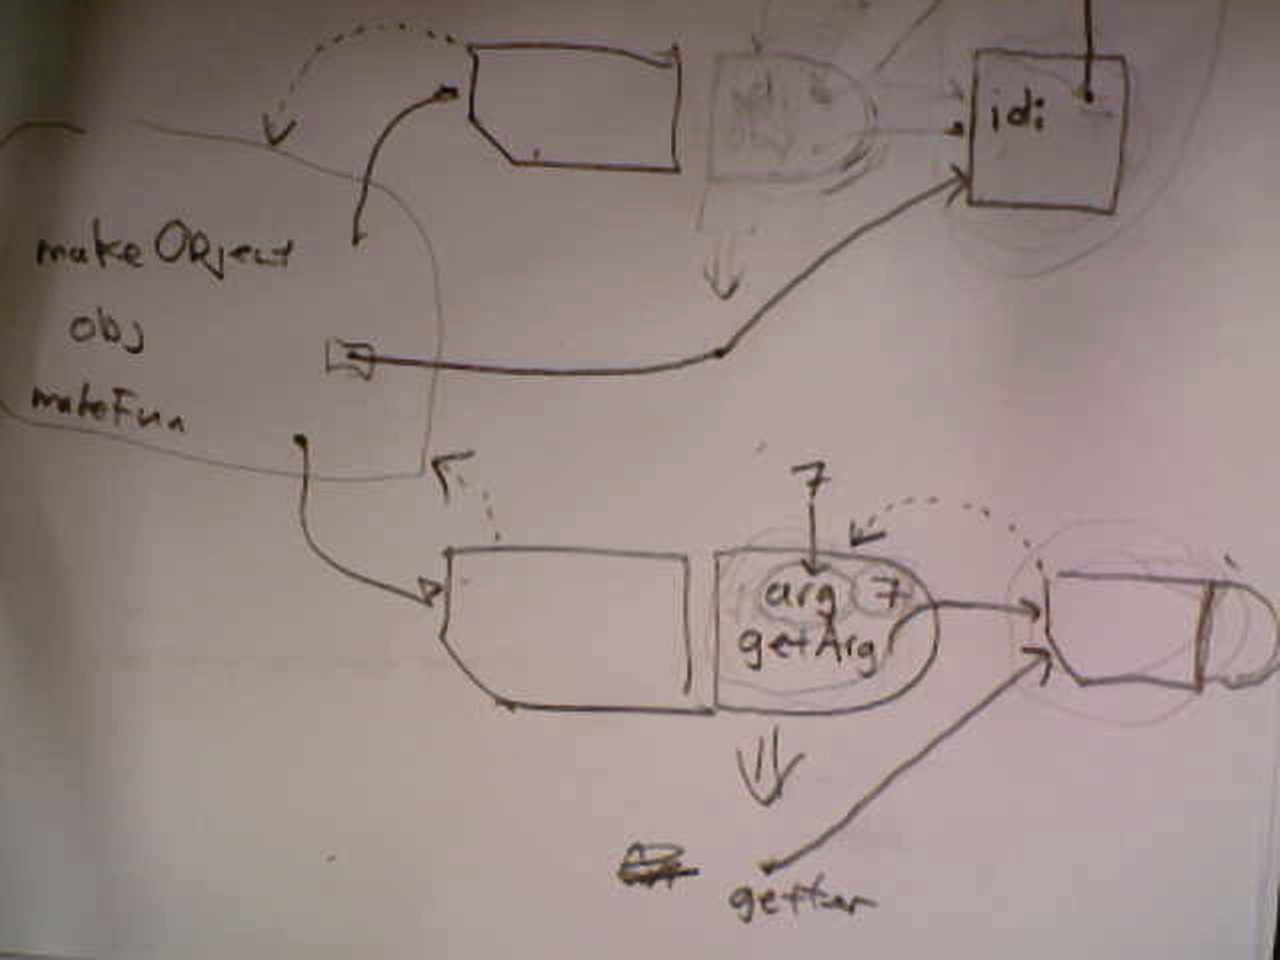 id:
makeObject
obj
makeFun
7
arg 7
getArg
getter